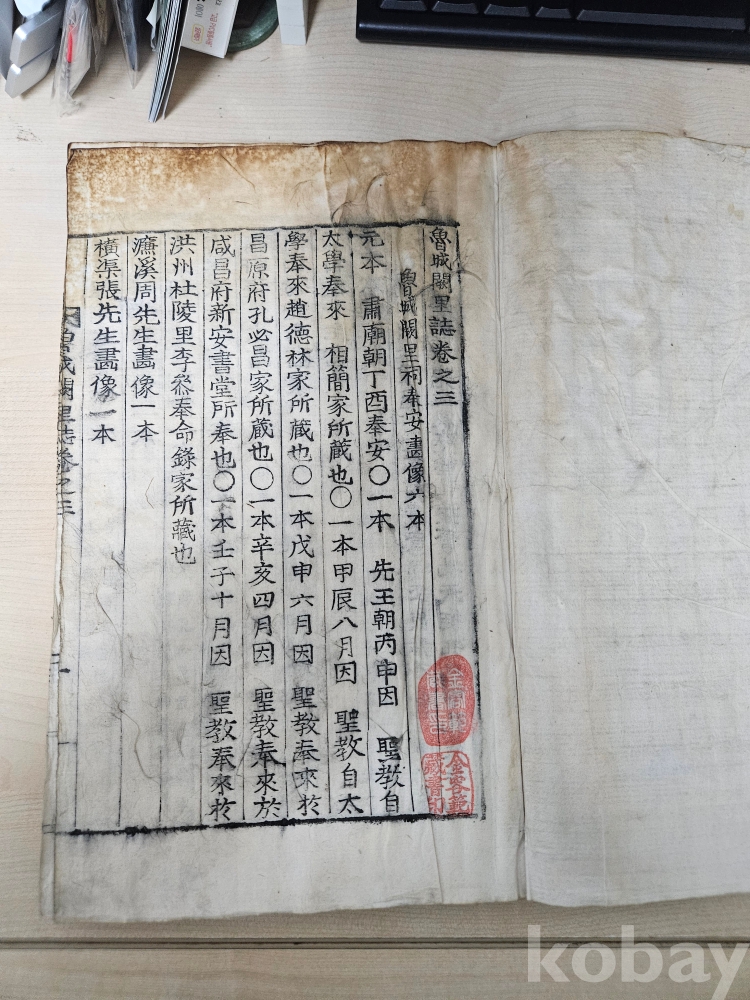 魯城闕里誌卷之三
魯城闕里祠奉安畵像六本
元本 肅廟朝丁酉奉安〇一本 先王朝丙申因 聖教自
太學奉來 相簡家所藏也〇一本甲辰八月因 聖教自太
學奉來趙德林家所藏也〇一本戊申六月因 聖教奉來於
昌原府孔必昌家所藏也〇一本辛亥四月因 聖教奉來於
咸昌府新安書堂所奉也〇一本壬子十月因 聖教奉來於
洪州杜陵里李叅奉命錄家所藏也
濂溪周先生畵像一本
橫渠張先生畵像一本
魯城闕里誌卷之三
一
金容範
藏書印
kobay